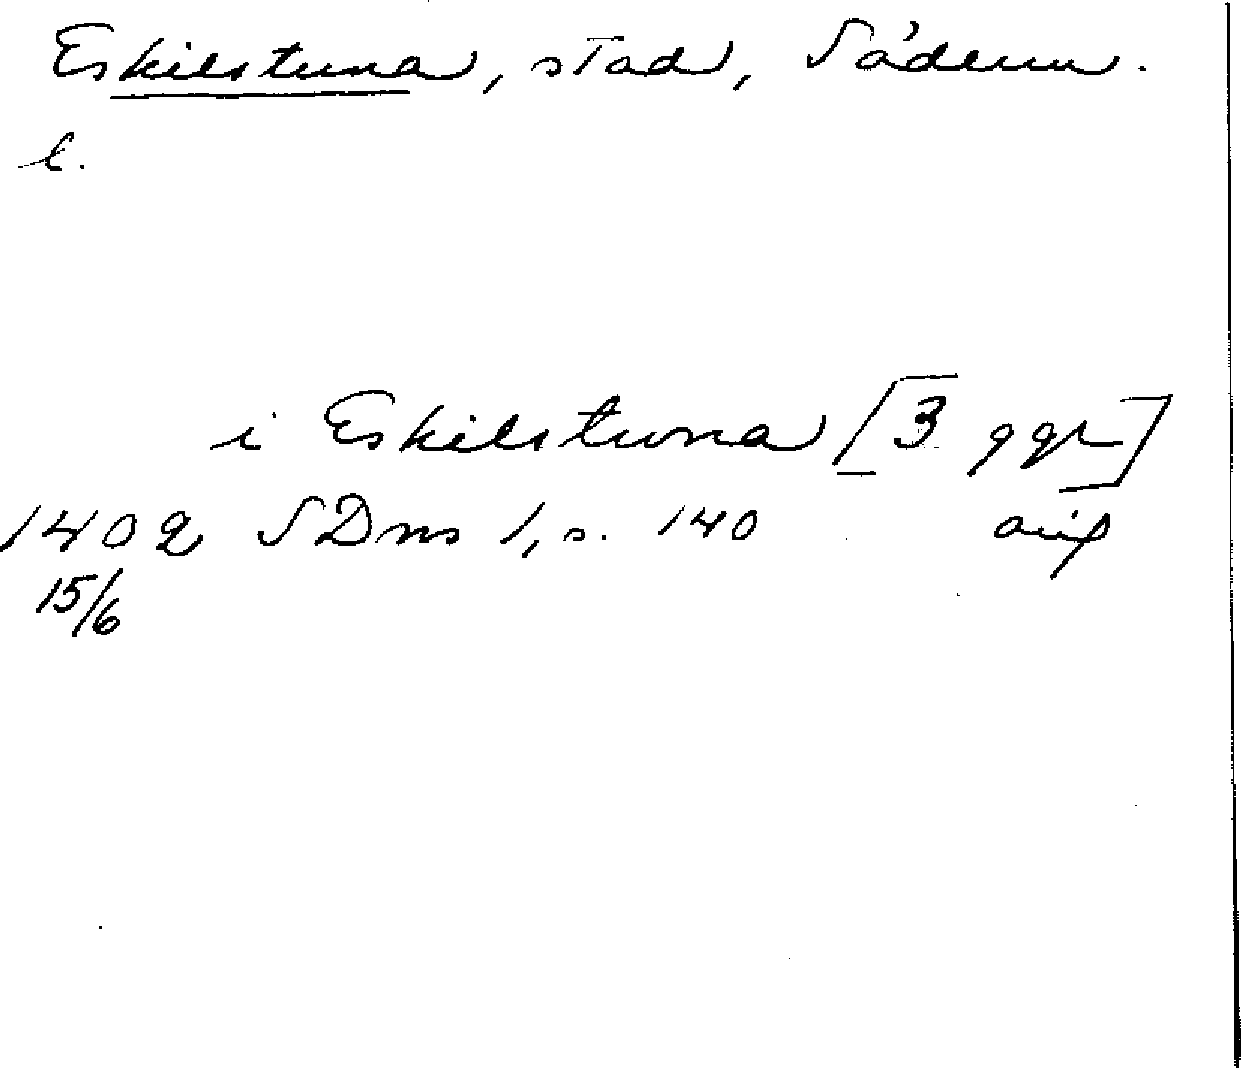 Eskilstuna, stad, Söderm.
l.
i Eskilstuna [3 ggr]
1402 SDns 1, s. 140 avs
15/6